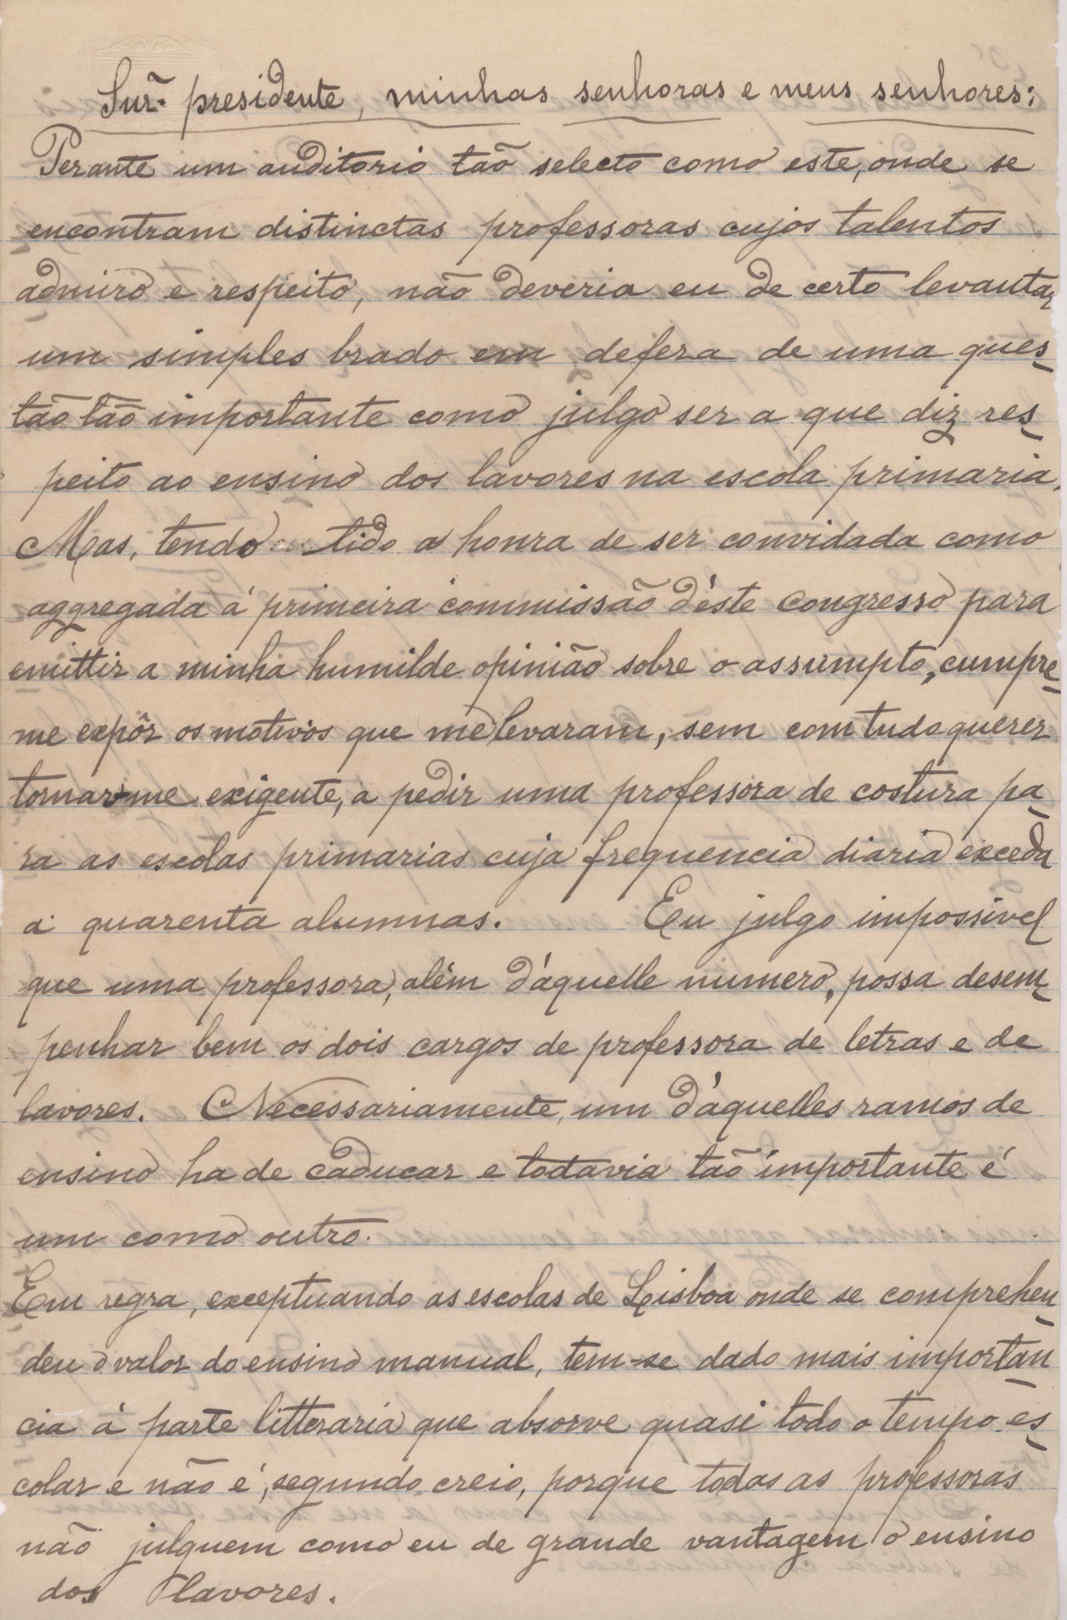 Snr.ª presidente, minhas senhoras e meus senhores:
Perante um auditorio tão selecto como este, onde se
encontram distinctas professoras cujos talentos
admiro e respeito, não deveria eu de certo levantar
um simples brado em defeza de uma ques-
tão tão importante como julgo ser a que diz res-
peito ao ensino dos lavores na escola primaria.
Mas, tendo tido a honra de ser convidada como
aggregada á primeira commissão d'éste congresso para
emittir a minha humilde opinião sobre o assumpto, cumpre-
me expôr os motivos que me levaram, sem comtudo querer
tornar-me exigente, a pedir uma professora de costura pa-
ra as escolas primarias cuja frequencia diaria exceda
a quarenta alumnas. Eu julgo impossivel
que uma professora, além d'aquelle numero, possa desem-
penhar bem os dois cargos de professora de letras e de
lavores. Necessariamente, um d'aquelles ramos de
ensino ha de caducar e todavia tão importante é
um como outro.
Em regra, exceptuando as escolas de Lisboa onde se comprehen-
deu o valor do ensino manual, tem-se dado mais importan-
cia á parte litteraria que absorve quasi todo o tempo es-
colar e não é, segundo creio, porque todas as professoras
não julguem como eu de grande vantagem o ensino
dos lavores.